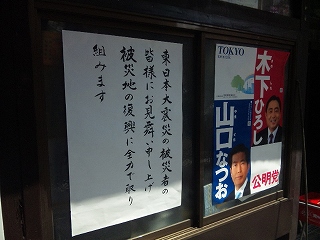 東日本大震災の被災者の
皆様にお見舞い申し上げ
被災地の復興に全力で取り
組みます
TOKYO
木下ひろし
山口なつお
公明党